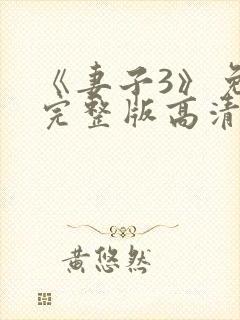 《妻子3》免
完整版高清
黄悠然